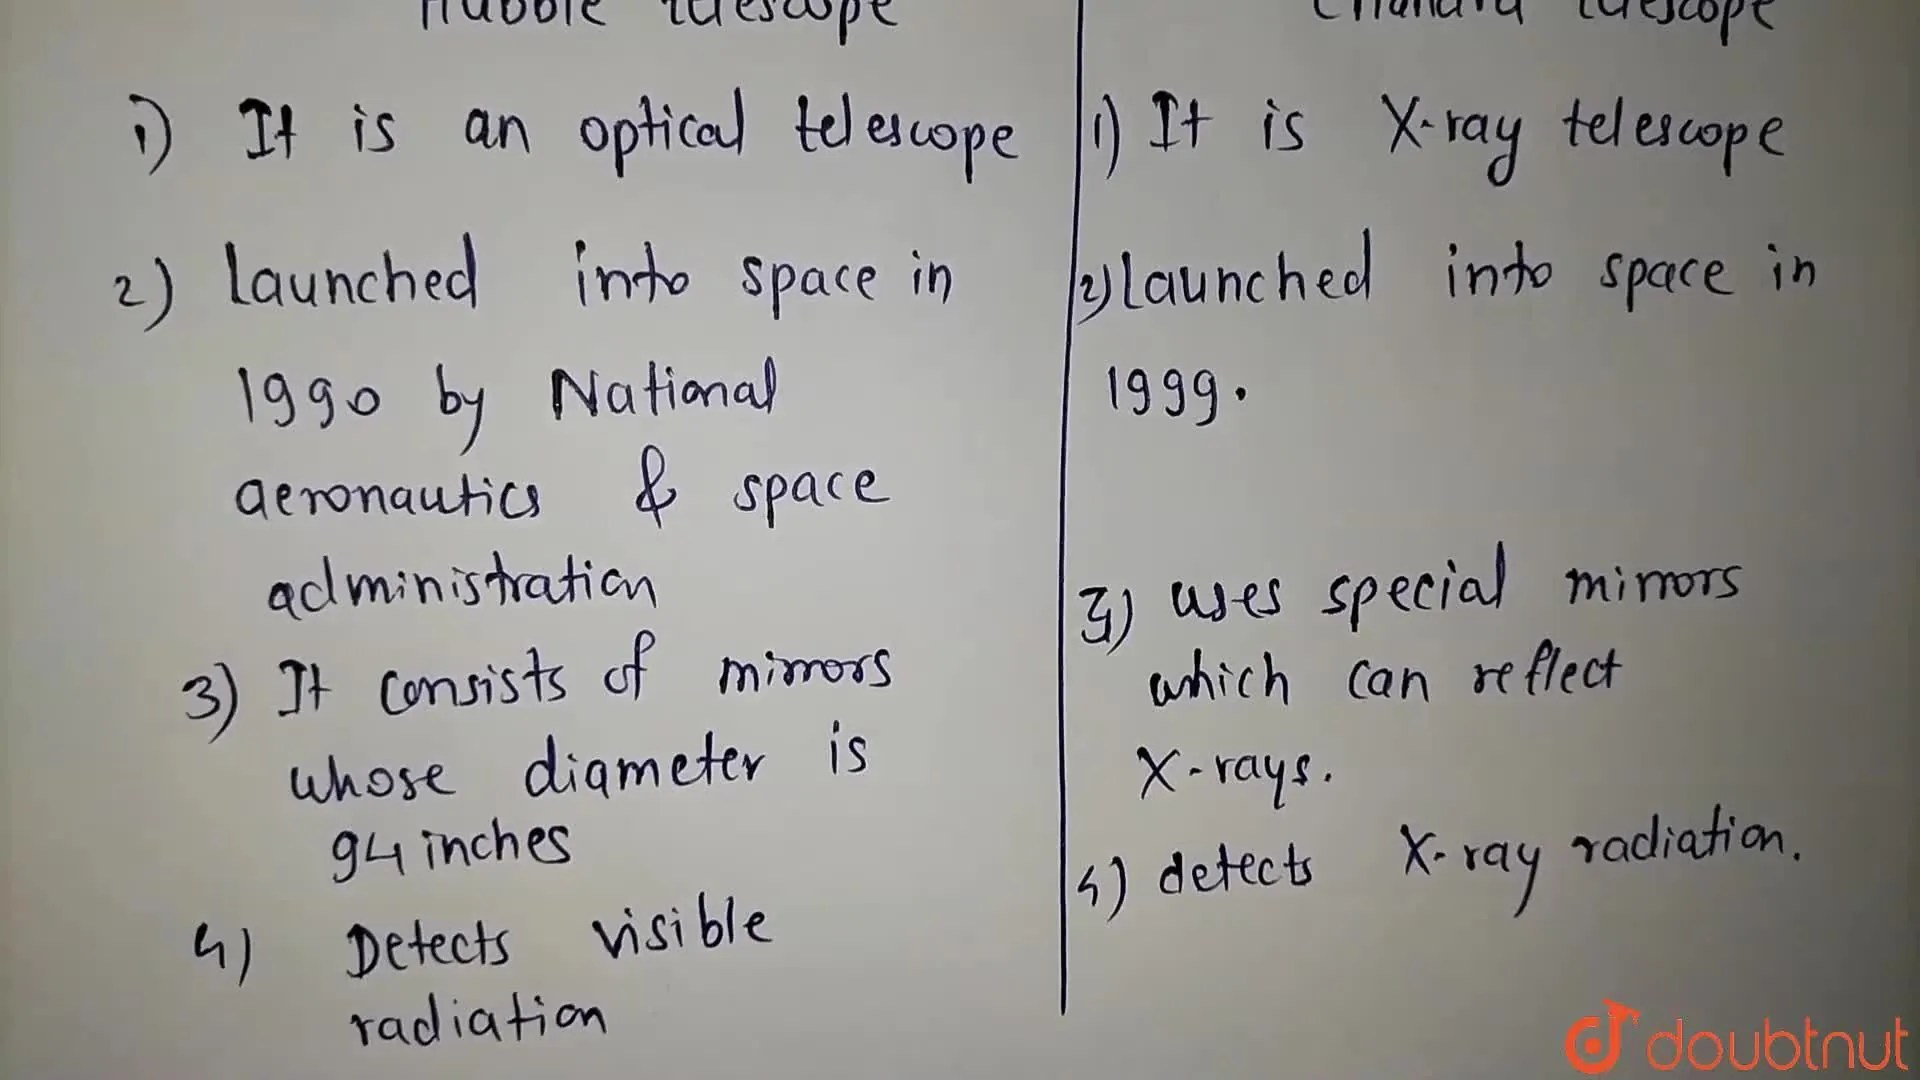 Hubble telescope
1) It is an optical telescope
2) Launched into space in
1990 by National
aeronautics & space
administration
3) It consists of mirrors
whose diameter is
94 inches
4) Detects visible
radiation
Chandra telescope
1) It is X-ray telescope
2) Launched into space in
1999.
3) uses special mirrors
which can reflect
X-rays.
4) detects X-ray radiation.
doubtnut